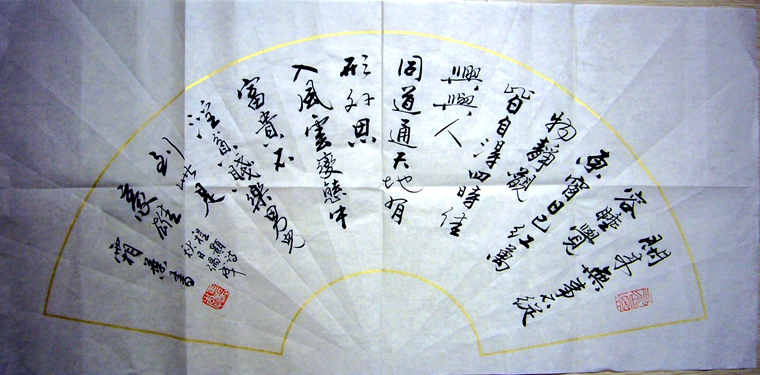 閒来無事不從
容睡覺
東窗日已紅萬
物靜觀
皆自得四時佳
興與人
同道通天地有
形外思
入風雲變態中
富貴不
淫貧賤樂男兒
到此是
豪雄
程顥詩
秋日偶成
書